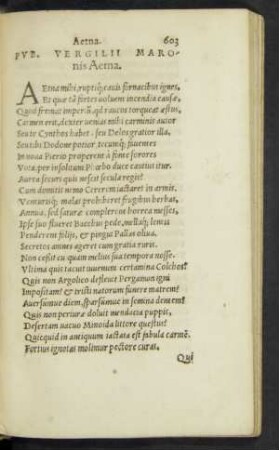 Aetna. 603
PVB. VERGILII MARO-
nis Aetna.
AEtna mihi, ruptiq; cauis fornacibus ignes,
Et quæ tã fortes uoluant incendia causæ,
Quid fremat imperiũ, qd raucos torqueat æstus,
Carmen erit, dexter uenias mihi carminis autor
Seu te Cynthos habet: seu Delos gratior illa,
Seu tibi Dodone potior, tecumq; fauentes
In noua Pierio properent à fonte sorores
Vota, per insolitum Phœbo duce tutius itur.
Aurea securi quis nescit secula regis?
Cum domitis nemo Cererem iactaret in aruis.
Venturisq; malas prohiberet frugibus herbas,
Annua. sed saturæ complerent horrea messes,
Ipse suo flueret Bacchus pede, mellaq; lentis
Penderent folijs, & pinguis Pallas oliua,
Secretos amnes ageret cum gratia ruris.
Non cessit cu iquam melius sua tempora nosse.
Vltima quis tacuit iuuenum certamina Colchos?
Quis non Argolico defleuit Pergamon igni
Impositam? & tristi natorum funere matrem?
Auersumue diem, sparsumue in semina dentem?
Quis non periuræ doluit mendacia puppis,
Desertam uacuo Minoida littore questus?
Quicquid in antiquum iactata est fabula carmẽ.
Fortius ignotas molimur pectore curas.
Qui